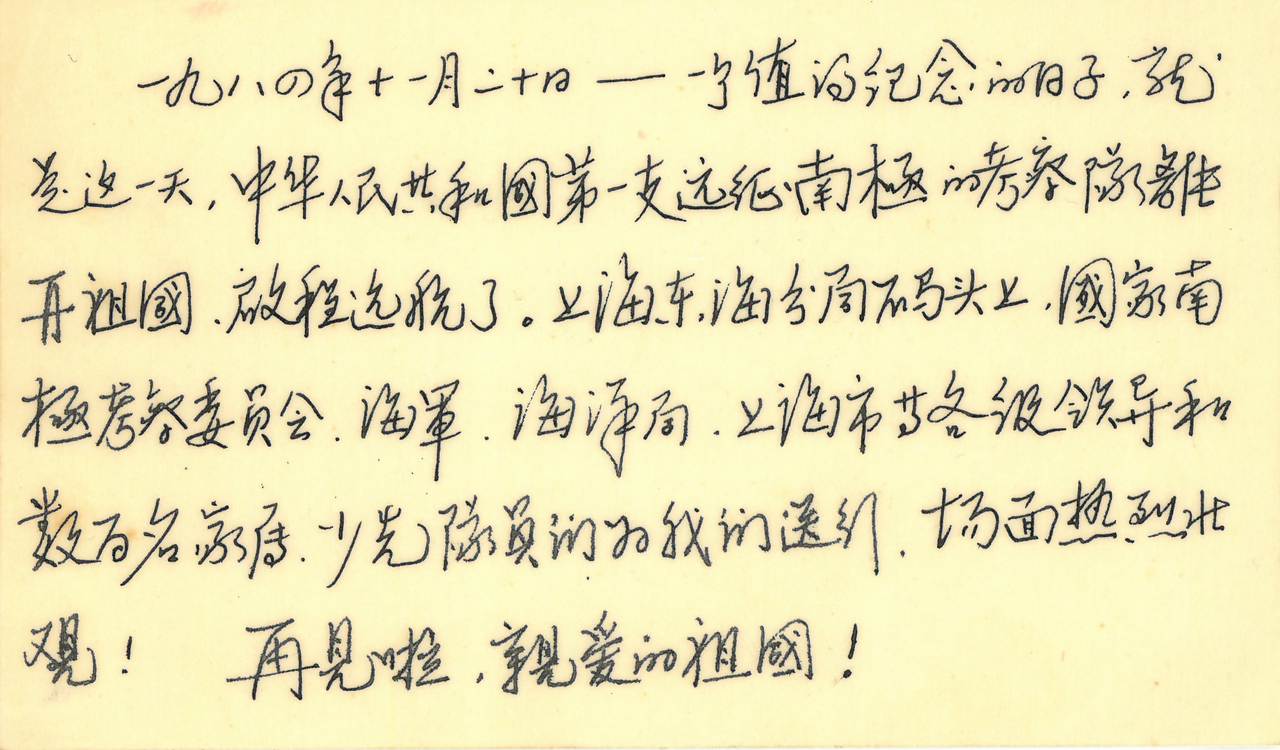 一九八四年十一月二十日——一个值得纪念的日子，就
是这一天，中华人民共和國第一支远征南極的考察隊離
再祖國，啟程远航了。上海东海分局码头上，國家南
極考察委員会、海軍、海洋局、上海市等各级領导和
数百名家属、少先隊員們为我們送行，场面热烈壮
观！ 再見啦，親爱的祖國！